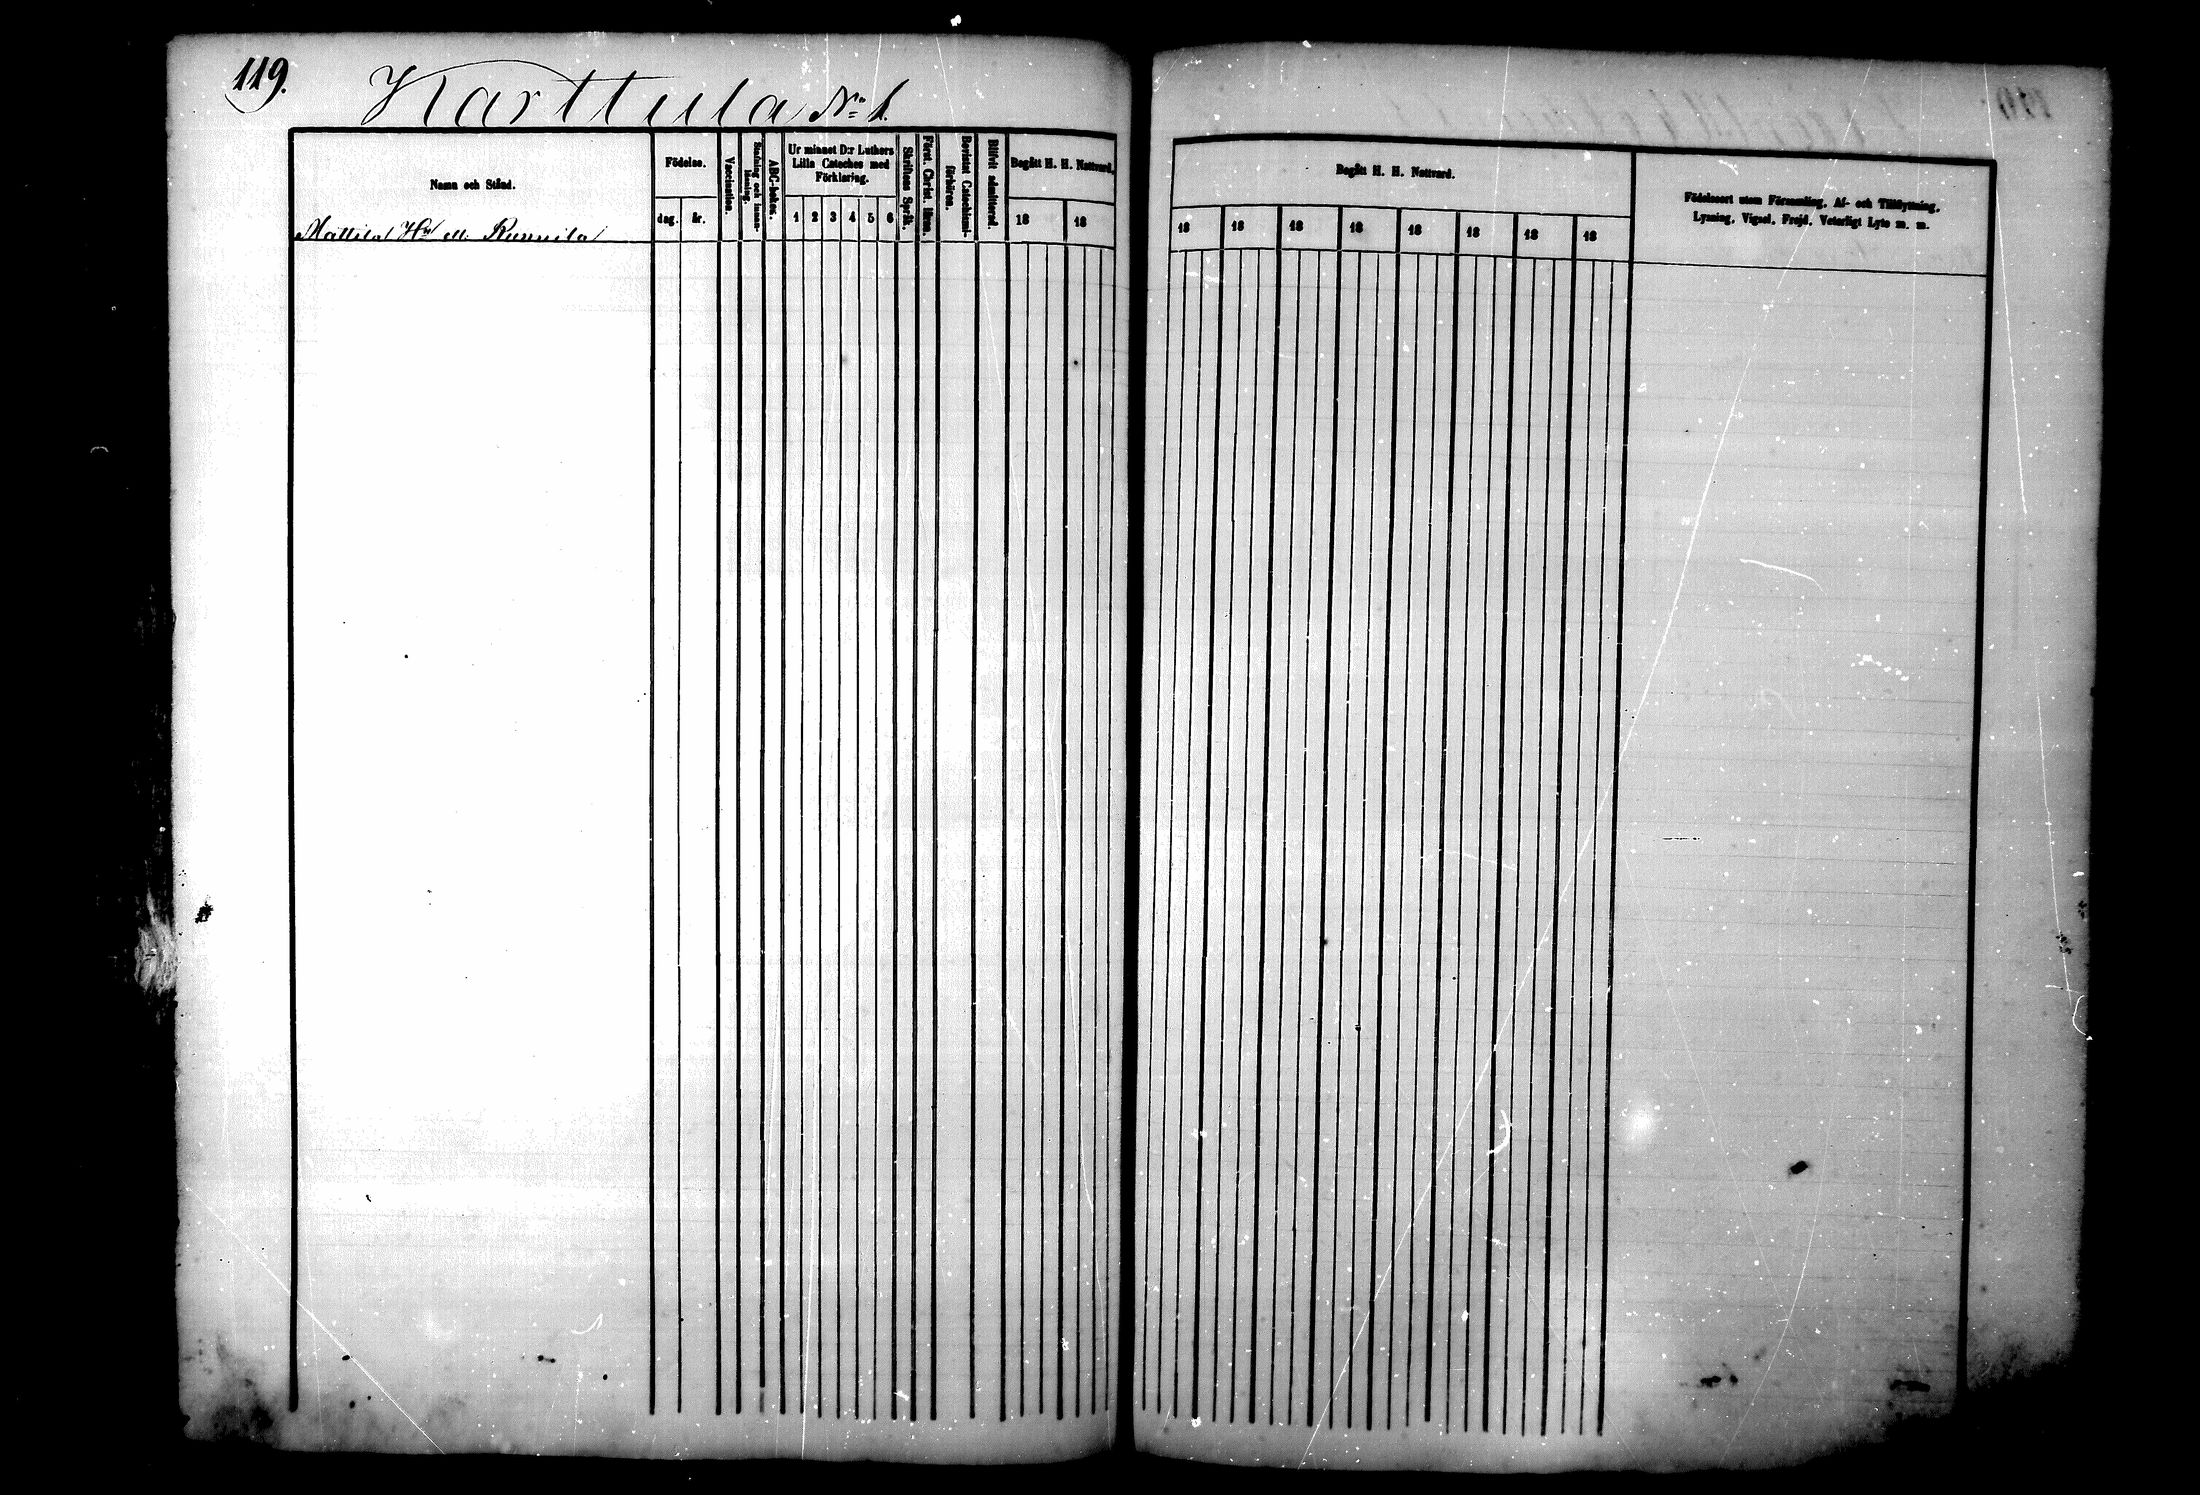 119.
Karttula No 1.
Namn och Stånd.
Födelse.
dag. år.
Vaccination.
Stafning och innanläsning.
ABC-boken.
Ur minnet D:r Luthers
Lilla Cateches med
Förklaring.
1 2 3 4 5 6
Skriftens Språk.
Först. Christ. läran.
Bevistat Catechismiförhören.
Blifvit admitterad.
Begått H. H. Nattvard.
18 18
Mattila Hn ell. Runnila
Begått H. H. Nattvard.
18 18 18 18 18 18 18 18
Födelseort utom Församling, Af- och Tillflyttning,
Lysning, Vigsel, Frejd, Veterligt Lyte m. m.